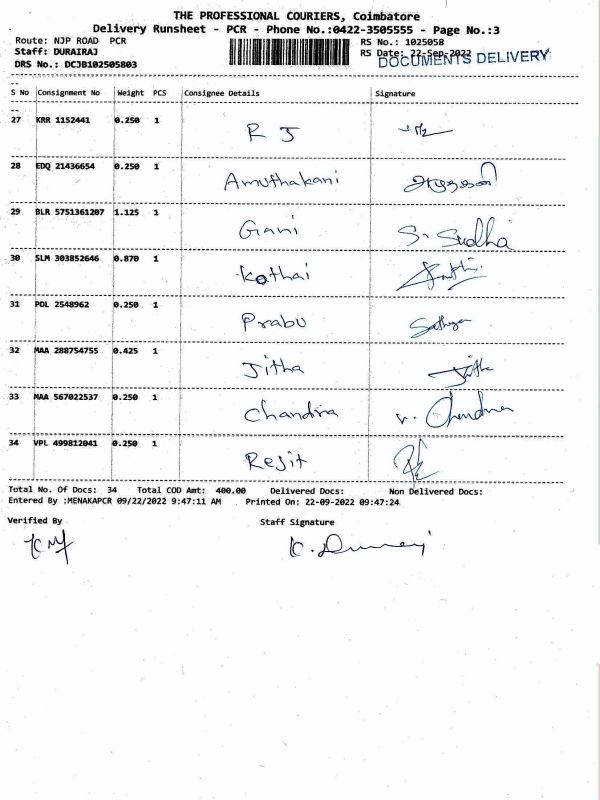 THE PROFESSIONAL COURIERS, Coimbatore
Delivery Runsheet - PCR - Phone No.:0422-3505555 - Page No.:3
Route: NJP ROAD PCR
RS No.: 1025058
Staff: DURAIRAJ
RS Date: 22-Sep-2022
DOCUMENTS DELIVERY
DRS No.: DCJB102505803
S No Consignment No Weight PCS Consignee Details Signature
27 KRR 1152441 0.250 1 R J
28 EDQ 21436654 0.250 1 Amuthakani
29 BLR 5751361207 1.125 1 Gani S. Sudha
30 SLM 303852646 0.870 1 Kothai
31 POL 2548962 0.250 1 Prabu Sathya
32 MAA 288754755 0.425 1 Jitha Jitha
33 MAA 567022537 0.250 1 Chandra v. Chandra
34 VPL 499812041 0.250 1 Rejit
Total No. Of Docs: 34 Total COD Amt: 400.00 Delivered Docs: Non Delivered Docs:
Entered By :MENAKAPCR 09/22/2022 9:47:11 AM Printed On: 22-09-2022 09:47:24
Verified By Staff Signature
K. Durairaj